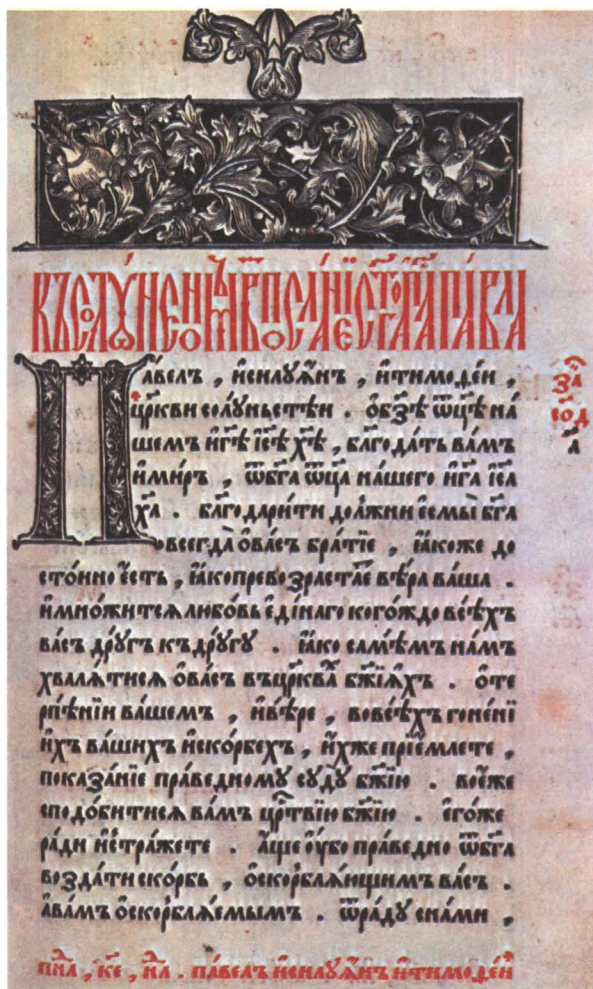 Къ солꙋ́нѧномъ в҃ посла́нїе ст҃о́го ап҃ла па́вла
Па́велъ , и҆силꙋѧ́нъ , и҆тимоѳе́и ,
цр҃кви солꙋ́ньстѣи . ѻ҆бз҃ѣ ѿц҃ѣ на́
шемъ и҆г҃ѣ і҆с҃ѣ х҃ѣ , бл҃года́ть ва́мъ
и҆ми́ръ , ѿбг҃а ѿц҃а на́шего и҆г҃а і҆с҃а
х҃а . бл҃годари́ти до́лжни є҆смы̀ бг҃а
всегда̀ ѻ҆ва́съ бра́тїе , ꙗ҆́коже до
сто́йно є҆́сть , ꙗ҆́копревозраста́е вѣ́ра ва́ша .
и҆мно́житсѧ любо́вь є҆ди́наго кого́ждо всѣ́хъ
ва́съ дрꙋ́гъ къдрꙋ́гꙋ . ꙗ҆́ко самѣ́мъ на́мъ
хвалѧ́тисѧ ѻ҆ва́съ въцр҃ква бж҃їѧхъ . ѻ҆те
рпѣ́нїи ва́шемъ , и҆вѣ́ре , вовсѣ́хъ гоне́нї
и҆хъ ва́шихъ и҆ско́рбехъ , и҆́хже прїе́млете ,
показа́нїе пра́ведномꙋ сꙋдꙋ̀ бж҃їю . вое҆́же
сподо́битисѧ ва́мъ цр҃твїю бж҃їю . є҆го́же
ради и҆стра́жете . а҆́ще ᲂу҆́бо пра́ведно ѿбг҃а
возда́ти ско́рбь , ѻ҆скорблѧ́ющимъ ва́съ .
а҆ва́мъ ѻ҆скорблѧ́емымъ . ѿра́дꙋ сна́ми ,
За
сод
а
па́велъ и҆силꙋѧ́нъ и҆тимоѳе́й